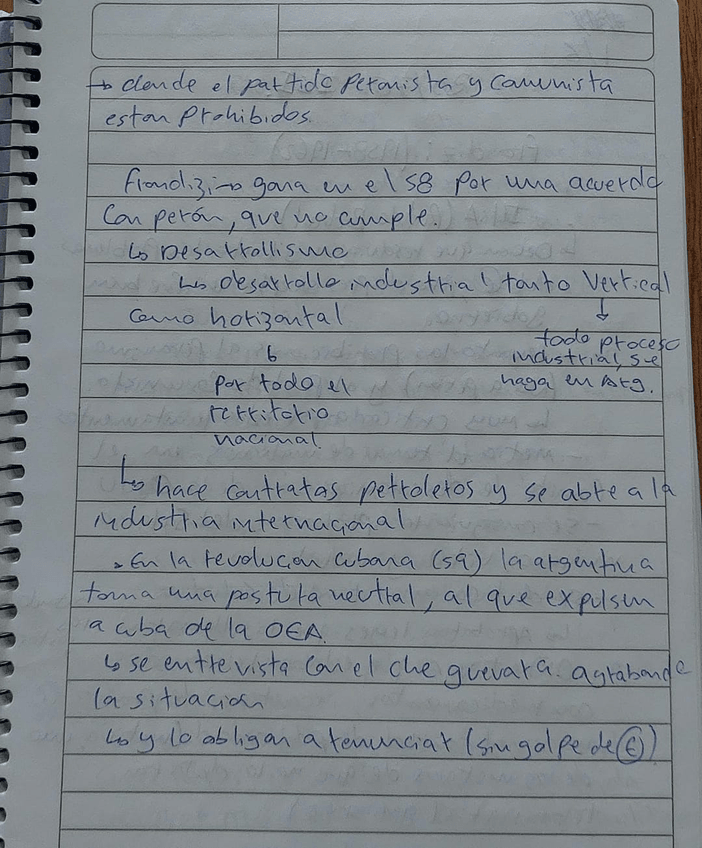 → donde el partido Peronista y Comunista
estan Prohibidos.
Frondizi → gana en el 58 Por una acuerdo
Con perón, que no cumple.
↳ Desarrollismo
↳ desarrollo industrial tanto Vertical
como horizontal
↓
todo proceso
industrial, se
haga en Arg.
↳
por todo el
territorio
nacional.
↳ hace contratos petroleros y se abre a la
industria internacional
. En la revolucion cubana (59) la argentina
toma una postura neutral, al que expulsen
a cuba de la OEA.
↳ se entrevista con el che guevara. agrabando
la situacion
↳ y lo obligan a renunciar (sin golpe de (E))